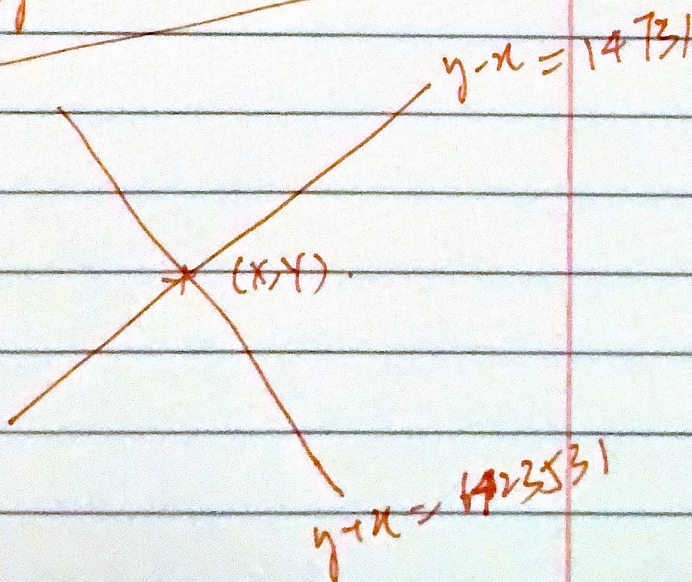 y-x = 14731
(X,Y)
y+x = 1423531